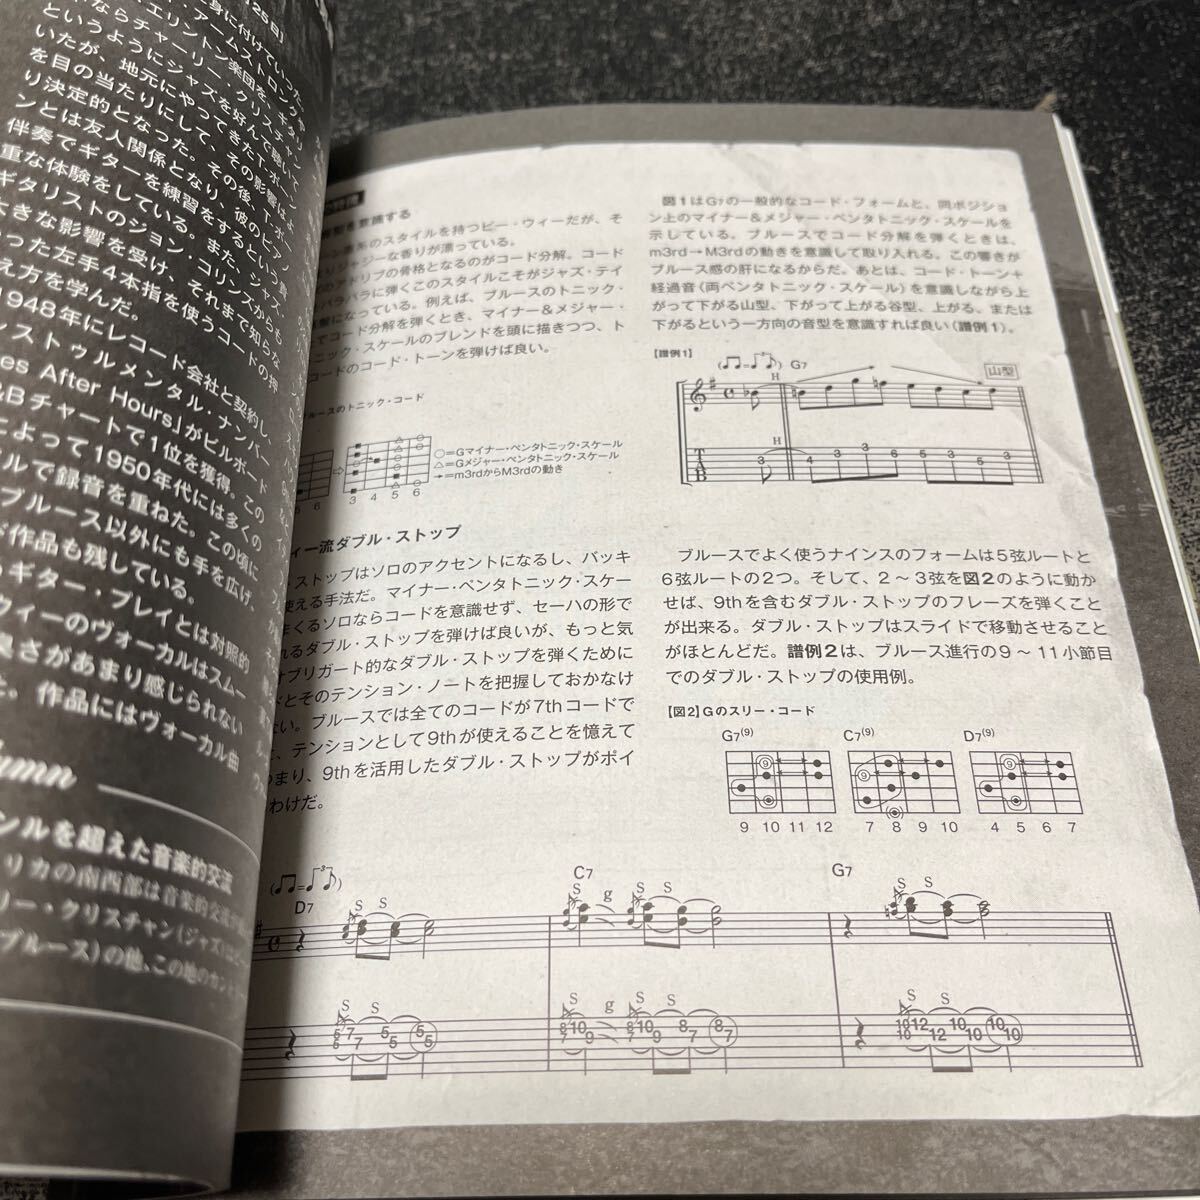 25日]
身に付けていった。
ならチャーリー・クリスチャン
というようにジャズを好んで聴いて
いたが、地元にやってきたT-ボーン
を目の当たりにして、その影響は
り決定的となった。その後、T-ボー
ンとは友人関係となり、彼のピアノ
伴奏でギターを練習をするという貴
重な体験をしている。また、ジャズ・
ギタリストのジョン・コリンズからも
大きな影響を受け、それまで知らな
かった左手4本指を使うコードの押
え方を学んだ。
1948年にレコード会社と契約し、
ンストゥルメンタル・ナンバー
es After Hours」がビルボード
&Bチャートで1位を獲得。この
によって1950年代には多くの
ルで録音を重ねた。この頃に
ブルース以外にも手を広げ、
ド作品も残している。
ギター・プレイとは対照的
ウィーのヴォーカルはスムー
臭さがあまり感じられない
作品にはヴォーカル曲
umn
ンルを超えた音楽的交流
リカの南西部は音楽的交流
リー・クリスチャン(ジャズ)
ブルース)の他、この地のカント
を意識する
系のスタイルを持つピー・ウィーだが、そ
りジャジーな香りが漂っている。
のアドリブの骨格となるのがコード分解。コード
バラバラに弾くこのスタイルこそがジャズ・テイ
になっている。例えば、ブルースのトニック・
でコード分解を弾くとき、マイナー&メジャー・
ニック・スケールのブレンドを頭に描きつつ、ト
コードのコード・トーンを弾けば良い。
ルースのトニック・コード
○=Gマイナー・ペンタトニック・スケール
△=Gメジャー・ペンタトニック・スケール
→=m3rdからM3rdの動き
5 6
3 4 5 6
図1はG7の一般的なコード・フォームと、同ポジショ
ン上のマイナー&メジャー・ペンタトニック・スケールを
示している。ブルースでコード分解を弾くときは、
m3rd→M3rdの動きを意識して取り入れる。この響きが
ブルース感の肝になるからだ。あとは、コード・トーン+
経過音(両ペンタトニック・スケール)を意識しながら上
がって下がる山型、下がって上がる谷型、上がる、または
下がるという一方向の音型を意識すれば良い(譜例1)。
【譜例1】
G7
山型
H
H
T
A
B
3 4 3 5 3 6 3 5 3
ィー流ダブル・ストップ
・ストップはソロのアクセントになるし、バッキ
使える手法だ。マイナー・ペンタトニック・スケー
まくるソロならコードを意識せず、セーハの形で
れるダブル・ストップを弾けば良いが、もっと気
オブリガート的なダブル・ストップを弾くために
ドとそのテンション・ノートを把握しておかなけ
ない。ブルースでは全てのコードが7thコードで
、テンションとして9thが使えることを憶えて
つまり、9thを活用したダブル・ストップがポイ
わけだ。
ブルースでよく使うナインスのフォームは5弦ルートと
6弦ルートの2つ。そして、2～3弦を図2のように動か
せば、9thを含むダブル・ストップのフレーズを弾くこと
が出来る。ダブル・ストップはスライドで移動させること
がほとんどだ。譜例2は、ブルース進行の9～11小節目
でのダブル・ストップの使用例。
【図2】Gのスリー・コード
G7(9) C7(9) D7(9)
9 10 11 12 7 8 9 10 4 5 6 7
D7 C7 G7
S S S g S S S S
S S S g S S S S